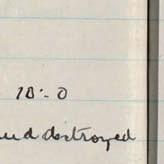 10 - 0
and destroyed